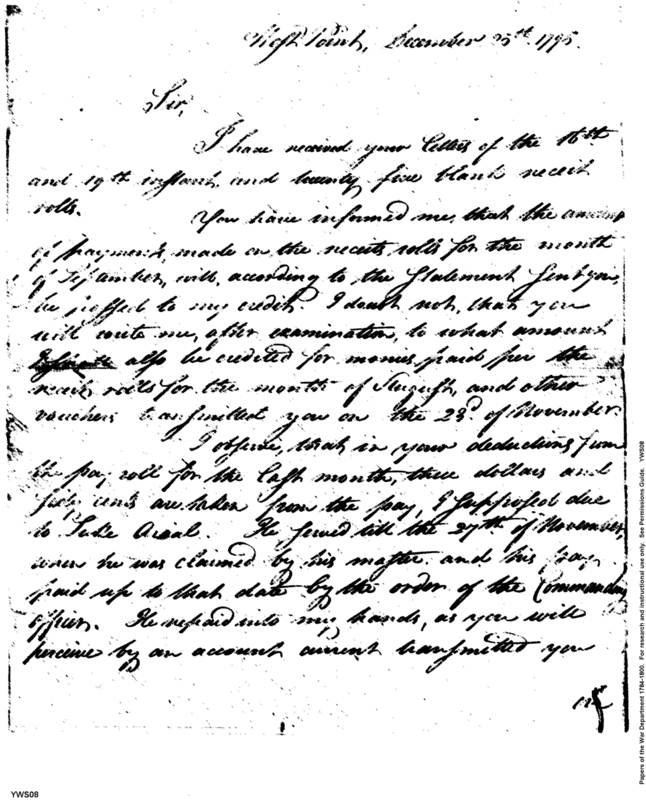 West Point, December 25th. 1795.
Sir,
I have received your letters of the 16th
and 19th instant, and twenty five blank receit
rolls.
You have informed me, that the amount
of payments, made on the receit rolls for the month
of September, will, according to the Statement Sent you,
be passed to my credit. I doubt not, that you
will write me, after examination, to what amount
also be credited for monies paid per the
receit rolls for the month of August, and other
vouchers transmitted you on the 23d. of November.
I observe, that in your deductions from
the pay roll for the last month, three dollars and
fifty cents are taken from the pay, I Supposed due
to He Served till the 27th. of November,
when he was claimed by his master, and his pay
paid up to that date by the order of the Commanding
officer. He repaid into my hands, as you will
perceive by an account current transmitted you
YWS08
Papers of the War Department 1784-1800. For research and instructional use only. See Permissions Guide. YWS08